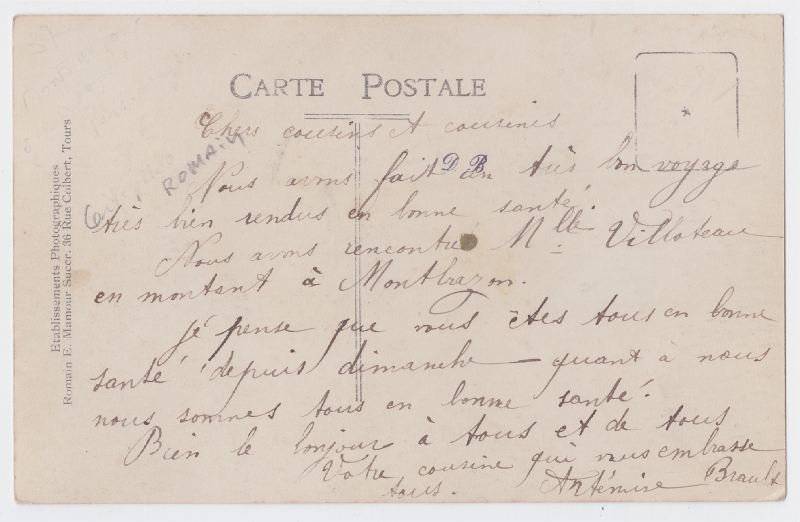 CARTE POSTALE
Chers cousins et cousines
ROMAIN
Nous avons fait un très bon voyage
D B
très bien rendus en bonne santé.
Nous avons rencontré Mlle Villoteau
en montant à Montbazon.
Je pense que vous êtes tous en bonne
santé depuis dimanche — quant à nous
nous sommes tous en bonne santé.
Bien le bonjour à tous et de tous
Votre cousine qui vous embrasse
tous. Antémise Brault
Etablissements Photographiques
Romain E. Mamour Succr. 36 Rue Colbert, Tours